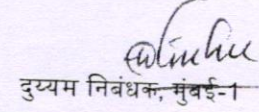 दुय्यम निबंधक, मुंबई-1